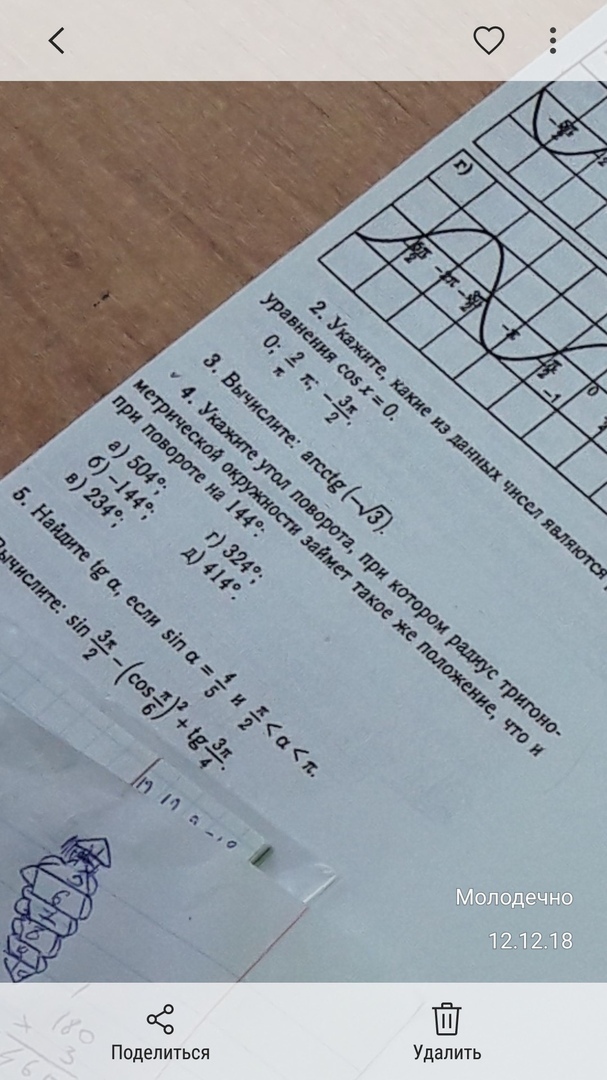 г)
2. Укажите, какие из данных чисел являются
уравнения cos x = 0.
0; 2/π π; −3π/2.
3. Вычислите: arcctg (−√3).
4. Укажите угол поворота, при котором радиус тригоно-
метрической окружности займет такое же положение, что и
при повороте на 144°:
а) 504°; г) 324°;
б) −144°; д) 414°.
в) 234°;
5. Найдите tg α, если sin α = 4/5 и π/2 < α < π.
Вычислите: sin 3π/2 − (cos π/6)² + tg 3π/4.
180
3
Молодечно
12.12.18
Поделиться
Удалить